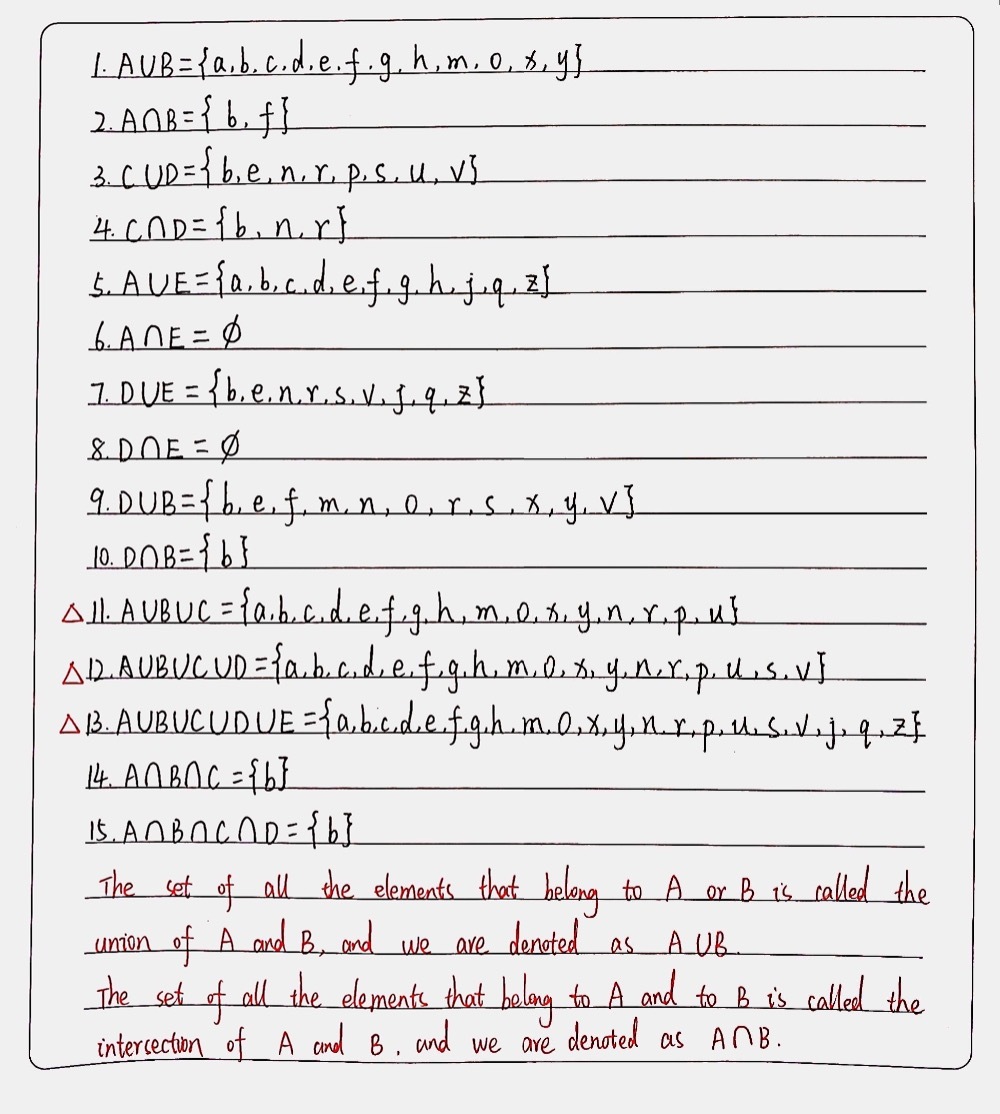 1. A∪B={a,b,c,d,e,f,g,h,m,o,x,y}
2. A∩B={b,f}
3. C∪D={b,e,n,r,p,s,u,v}
4. C∩D={b,n,r}
5. A∪E={a,b,c,d,e,f,g,h,j,q,z}
6. A∩E=∅
7. D∪E={b,e,n,r,s,v,j,q,z}
8. D∩E=∅
9. D∪B={b,e,f,m,n,o,r,s,x,y,v}
10. D∩B={b}
△11. A∪B∪C={a,b,c,d,e,f,g,h,m,o,x,y,n,r,p,u}
△12. A∪B∪C∪D={a,b,c,d,e,f,g,h,m,o,x,y,n,r,p,u,s,v}
△13. A∪B∪C∪D∪E={a,b,c,d,e,f,g,h,m,o,x,y,n,r,p,u,s,v,j,q,z}
14. A∩B∩C={b}
15. A∩B∩C∩D={b}
The set of all the elements that belong to A or B is called the
union of A and B, and we are denoted as A∪B.
The set of all the elements that belong to A and to B is called the
intersection of A and B, and we are denoted as A∩B.